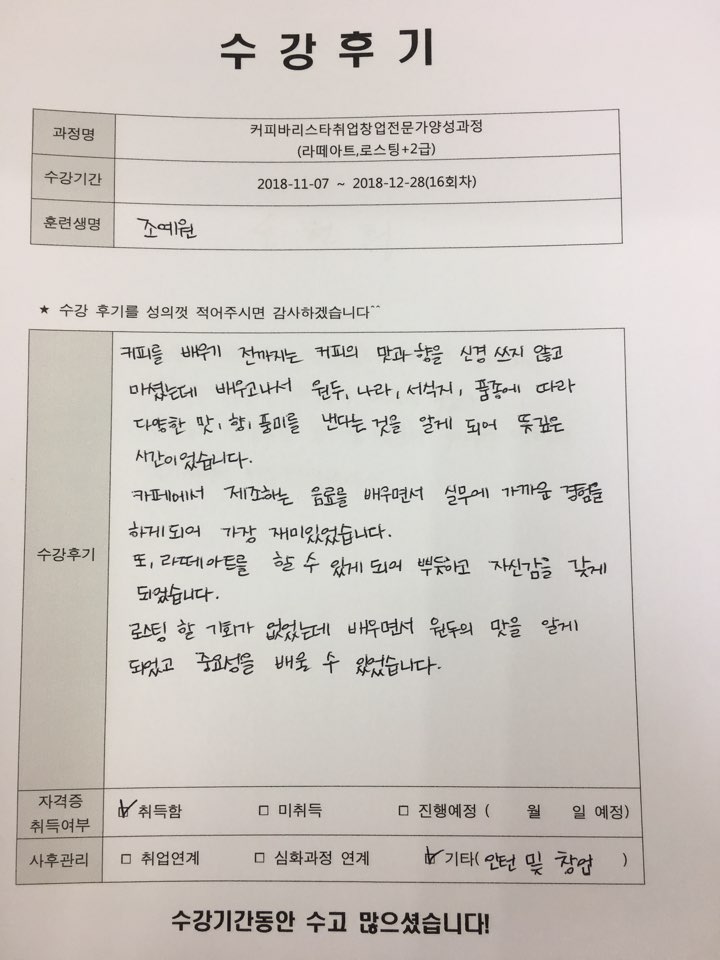 수강후기
과정명
커피바리스타취업창업전문가양성과정
(라떼아트,로스팅+2급)
수강기간
2018-11-07 ~ 2018-12-28(16회차)
훈련생명
조예원
★ 수강 후기를 성의껏 적어주시면 감사하겠습니다^^
수강후기
커피를 배우기 전까지는 커피의 맛과 향을 신경 쓰지 않고
마셨는데 배우고나서 원두, 나라, 서식지, 품종에 따라
다양한 맛, 향, 풍미를 낸다는 것을 알게 되어 뜻깊은
시간이었습니다.
카페에서 제조하는 음료를 배우면서 실무에 가까운 경험을
하게되어 가장 재미있었습니다.
또, 라떼아트를 할 수 있게 되어 뿌듯하고 자신감을 갖게
되었습니다.
로스팅 할 기회가 없었는데 배우면서 원두의 맛을 알게
되었고 중요성을 배울 수 있었습니다.
자격증
취득여부
☑ 취득함 □ 미취득 □ 진행예정 ( 월 일 예정)
사후관리
□ 취업연계 □ 심화과정 연계 ☑ 기타( 인턴 및 창업 )
수강기간동안 수고 많으셨습니다!